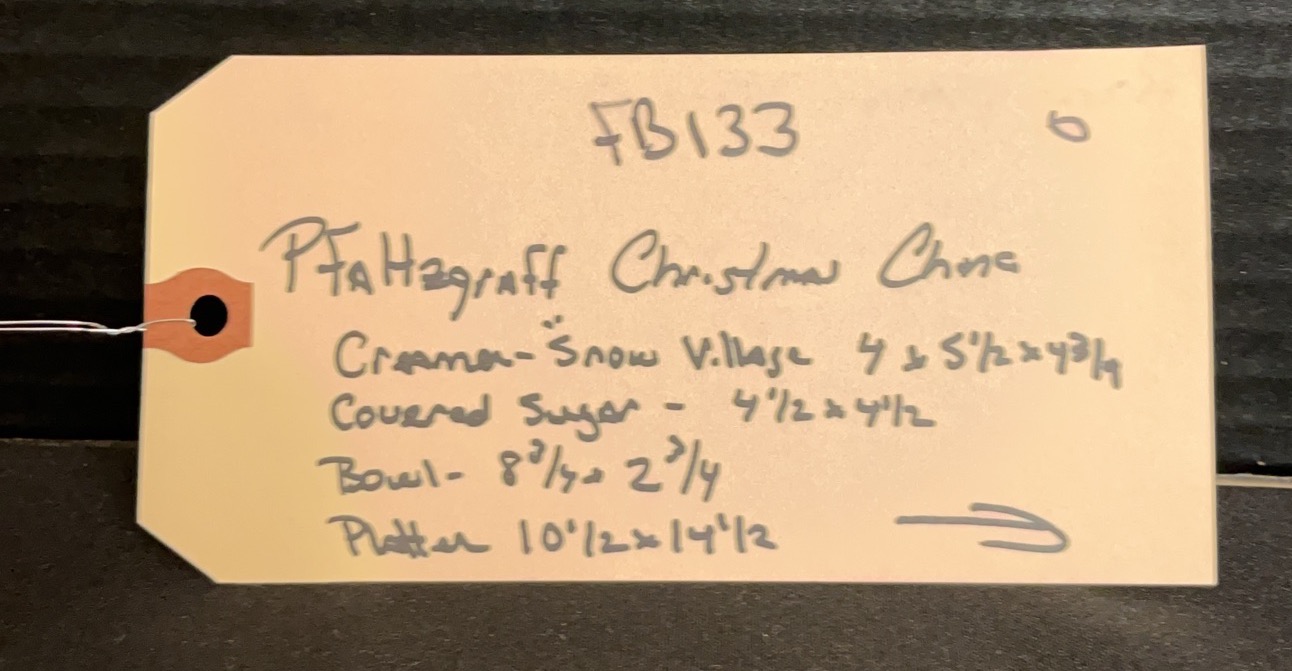 FB133
Pfaltzgraff Christmas China
Creamer - "Snow Village 4 x 5 1/2 x 4 3/4
Covered Sugar - 4 1/2 x 4 1/2
Bowl - 8 3/4 x 2 3/4
Platter 10 1/2 x 14 1/2